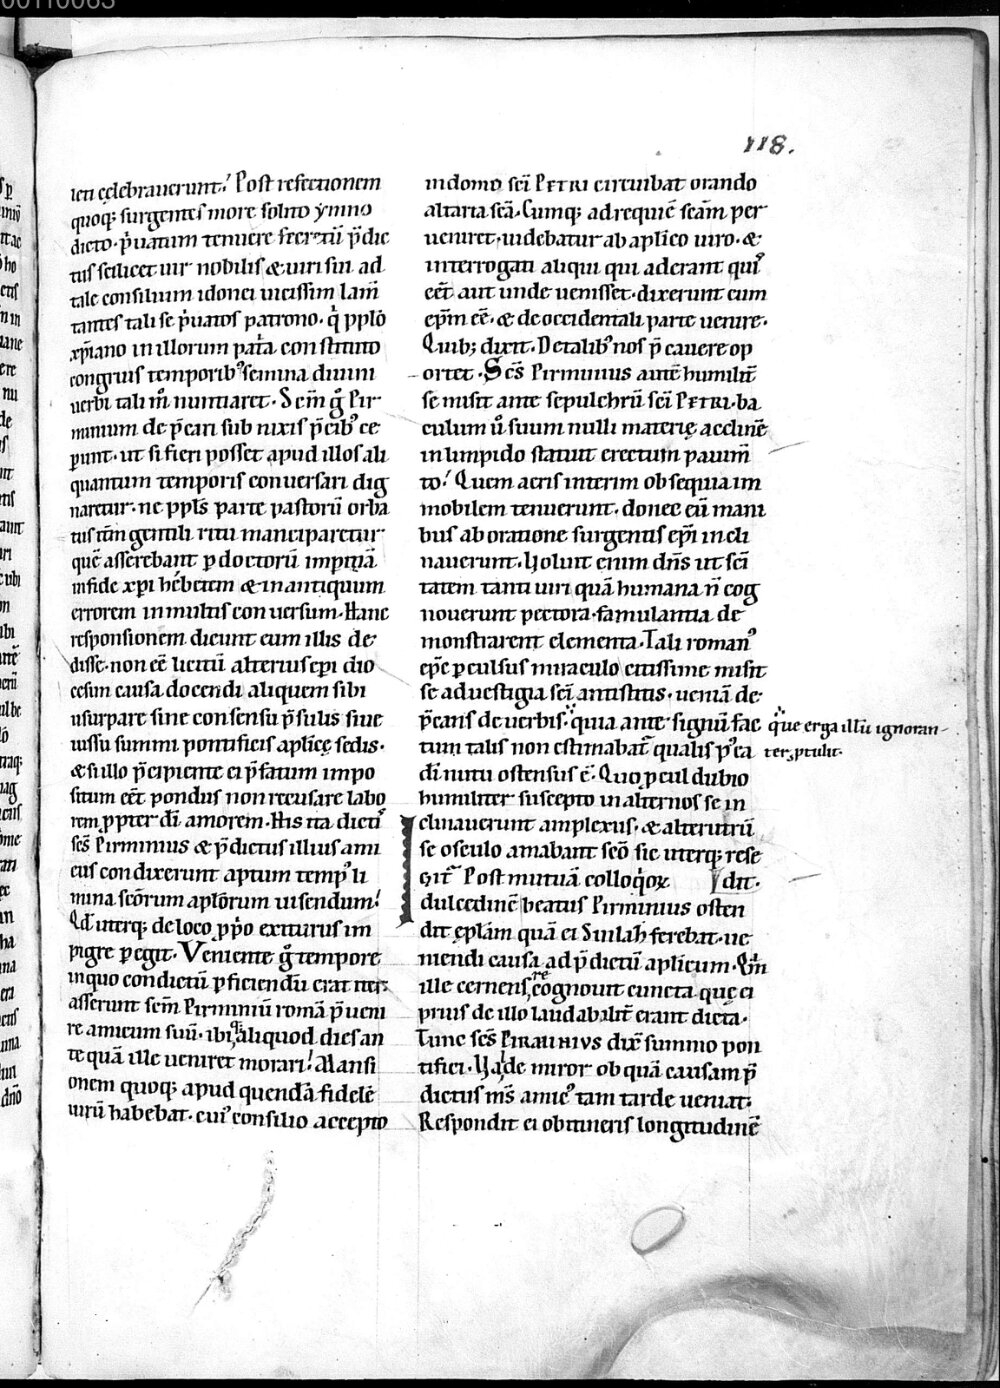 118.
leti celebrauerunt. Post refectionem
quoq; surgentes more solito ẏmno
dicto. p̄uatum tenuere secretū p̄dic
tus scilicet uir nobilis & uiri sui ad
tale consilium idonei uicissim lam̄
tantes tali se p̄uatos patrono. q̄ pplo
xp̄iano in illorum pat̄a constituto
congruis temporibꝰ semina diuini
uerbi tali m̄ nuntiaret. Scm̄ g̊ Pir
minium de p̄cari sub nixis p̄cibꝰ ce
perunt. ut si fieri posset apud illos ali
quantum temporis conuersari dig
naretur. ne ppl̄s parte pastorū orba
tus tam̄ gentili ritu manciparetur
quē asserebant p doctorū impitiā
in fide xp̄i hebetem & in antiquum
errorem in multis conuersum. Hanc
responsionem dicunt eum illis de
disse. non eē licitū alterius ep̄i dio
cesim causa docendi aliquem sibi
usurpare sine consensu p̄sulis siue
iussu summi pontificis aplicę sedis.
& si illo p̄cipiente ei p̄fatum impo
situm eēt pondus non recusare labo
rem ppter dī amorem. His ita dictis
scs̄ Pirminius & p̄dictus illius ami
cus condixerunt aptum tempꝰ li
mina scōrum aplōrum uisendum.
Qd̄ uterq; de loco ppo exiturus im
pigre pegit. Veniente g̊ tempore
in quo condictū pficiendū erat iter
asserunt scm̄ Pirminiū romā p̄ueni
re amicum suū. ibiq; aliquod dies an
te quā ille ueniret morari. Mansi
onem quoq; apud quendā fidelē
uirū habebat. cuiꝰ consilio accepto
in domo scī PETRI circuibat orando
altaria scā. Cumq; ad requiē scām per
ueniret. uidebatur ab aplico uiro. &
interrogati aliqui qui aderant quis
eēt aut unde uenisset. dixerunt eum
ep̄m eē. & de occidentali parte uenire.
Quibꝰ dixit. De talibꝰ nos p̄cauere op
ortet. Scs̄ Pirminius autē humilit̄
se misit ante sepulchrū scī PETRI. ba
culum ū suum nulli materię acclinē
in limpido statuit erectum pauim̄
to. Quem aeris interim obsequia im
mobilem tenuerunt. donec eū mani
bus ab oratione surgentis ep̄i incli
nauerunt. Voluit enim dn̄s ut scī
tatem tanti uiri quā humana n̄ cog
nouerunt pectora. famulantia de
monstrarent elementa. Tali romanꝰ
ep̄c pculsus miraculo citissime misit
se ad uestigia scī antistitis. ueniā de
p̄cans de uerbis. quia ante signū fac
tum talis non estimabat̄ qualis pꝰea
dī nutu ostensus ē. Quo pcul dubio
humiliter suscepto in alternos se in
clinauerunt amplexus. & alterutrū
se osculo amabant scō sic uterq; rese
dit.
Igit̄ Post mutuā colloq̄ioꝝ
dulcedinē beatus Pirminius osten
dit ep̄lam quā ei Sinlah ferebat. ue
niendi causa ad p̄dictū aplicum. Qm̄
ille cernens recognouit cuncta quę ei
prius de illo laudabilit̄ erant dicta.
Tunc scs̄ PIRMINIVS dix̄ summo pon
tifici. Valde miror ob quā causam p̄
dictus ms̄ amicꝰ tam tarde ueniat.
Respondit ei ob itineris longitudinē
quę erga illū ignoran-
ter ptulit.